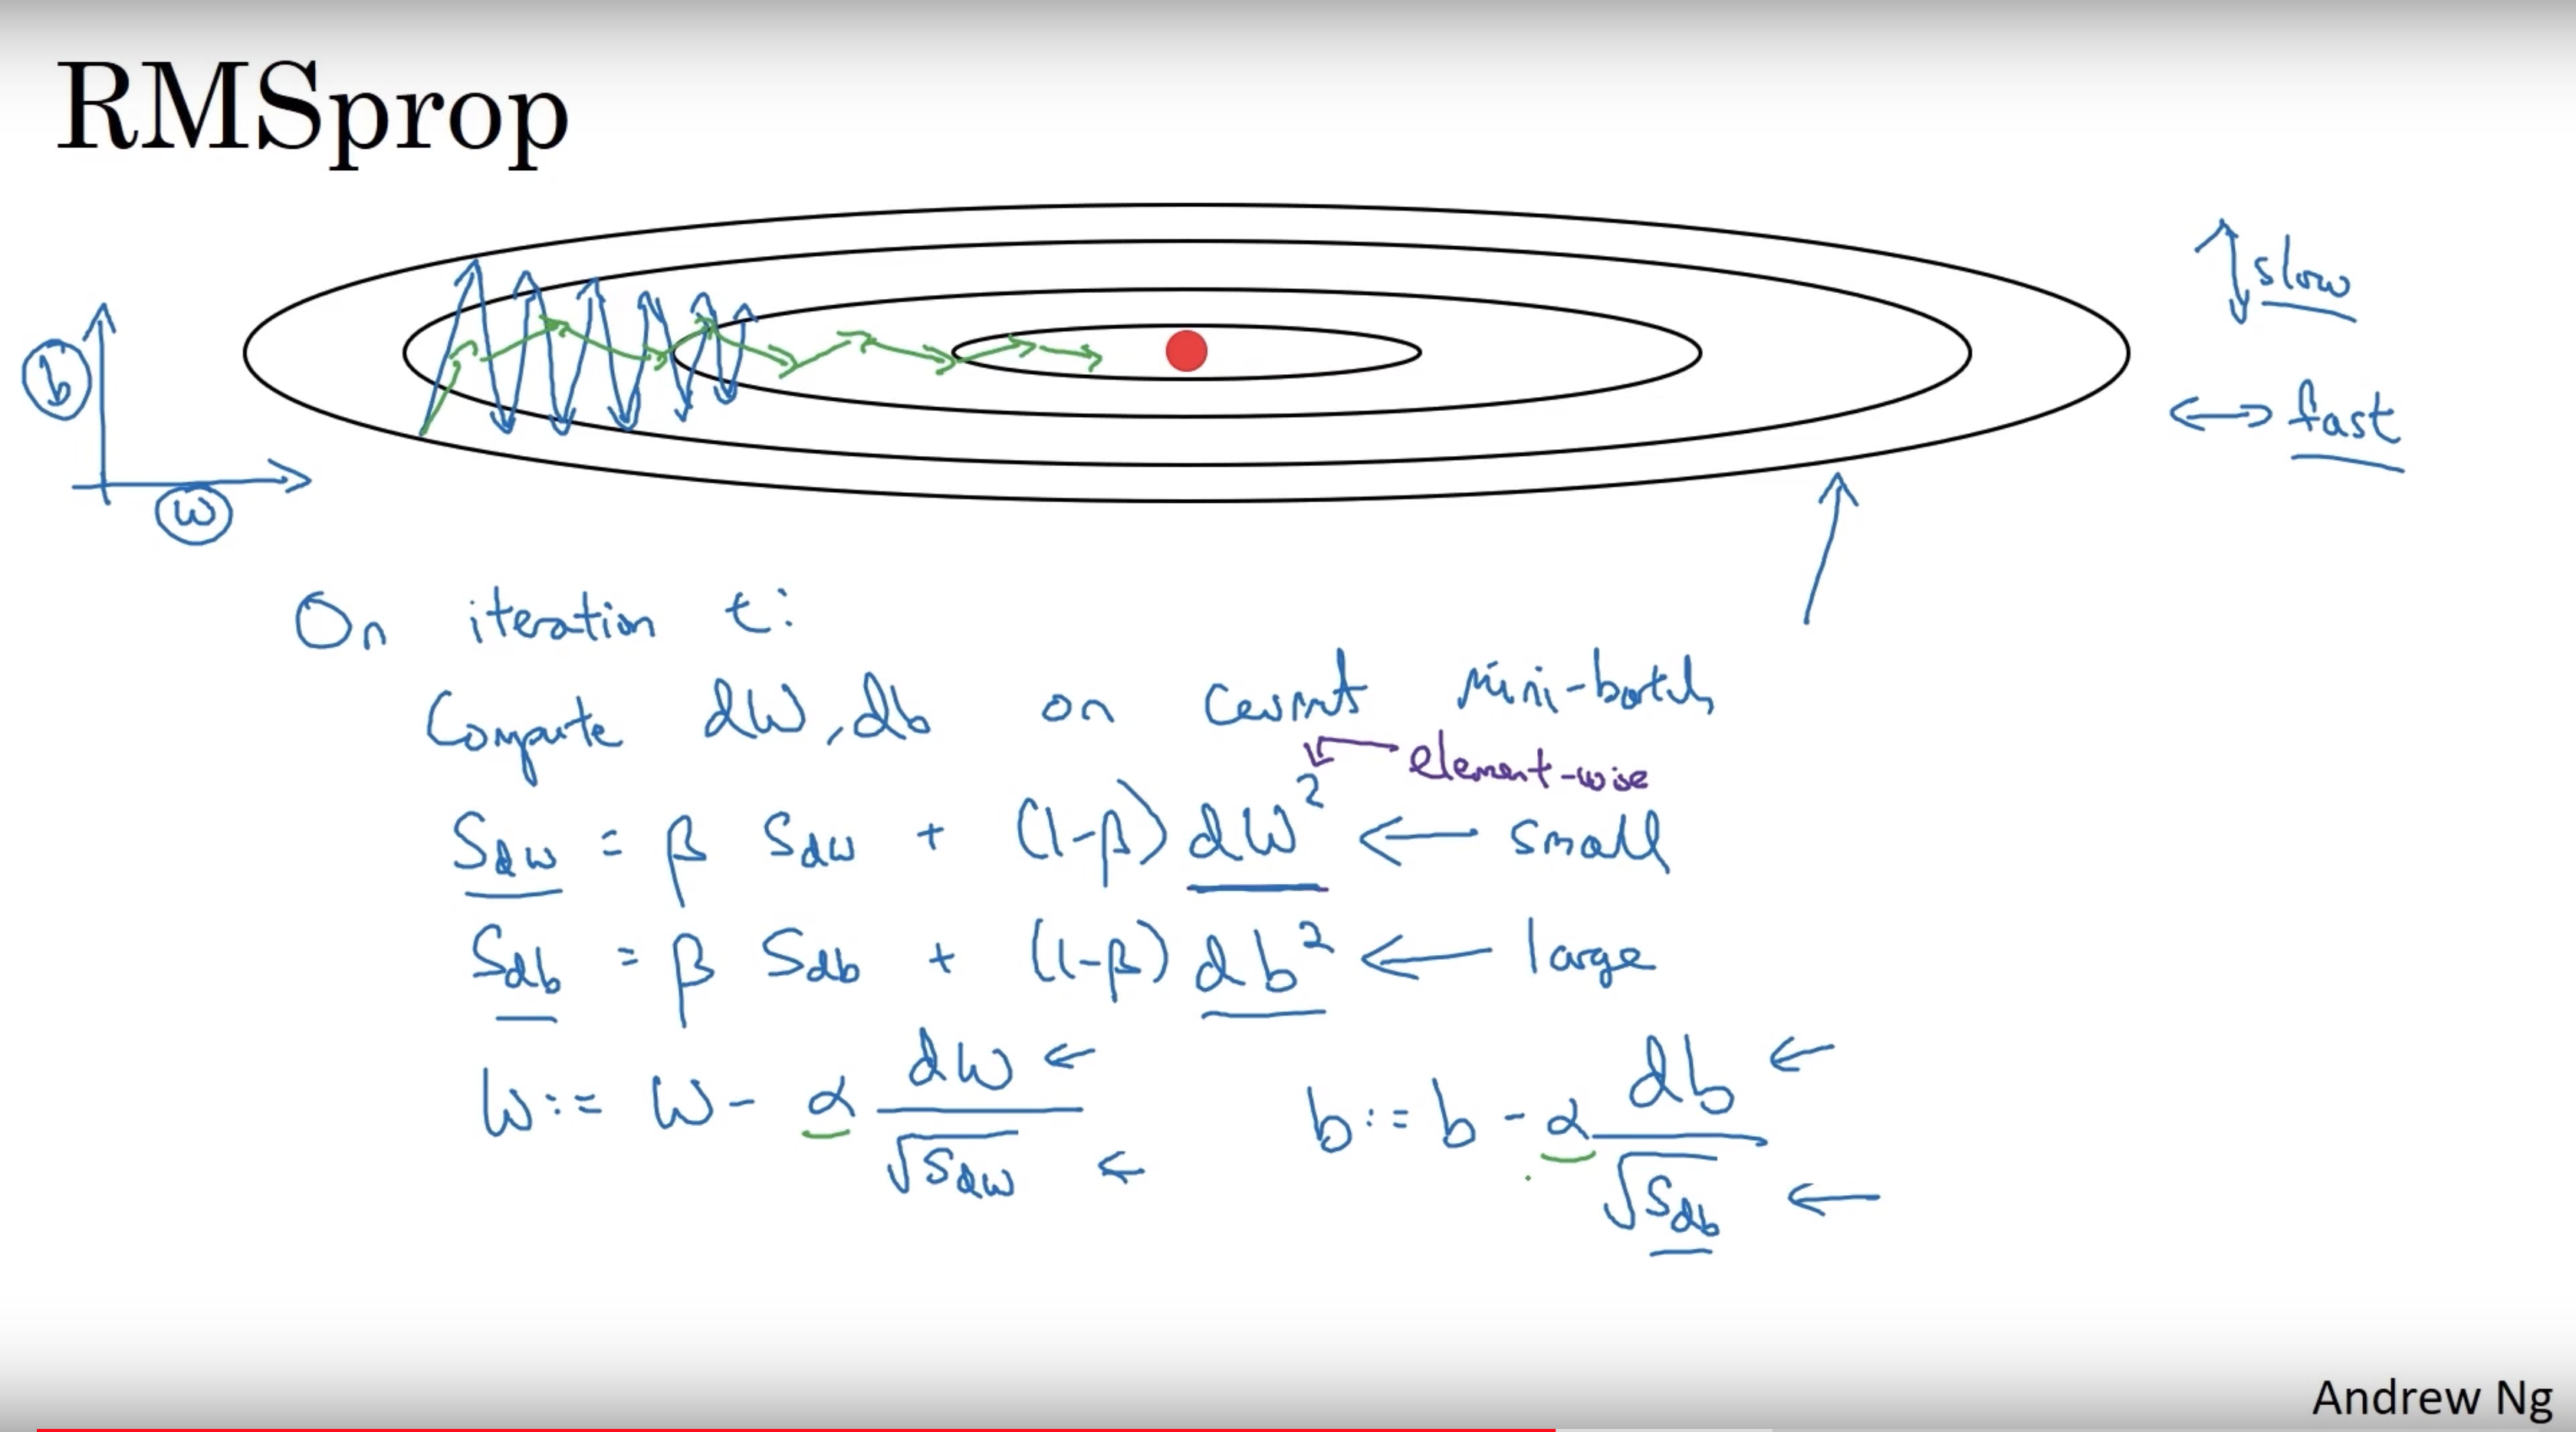 RMSprop
slow
b
fast
w
On iteration t:
Compute dW, db on current mini-batch
element-wise
S_dw = β S_dw + (1-β) dW² ← small
S_db = β S_db + (1-β) db² ← large
W := W - α dW/√S_dw ← b := b - α db/√S_db ←
Andrew Ng